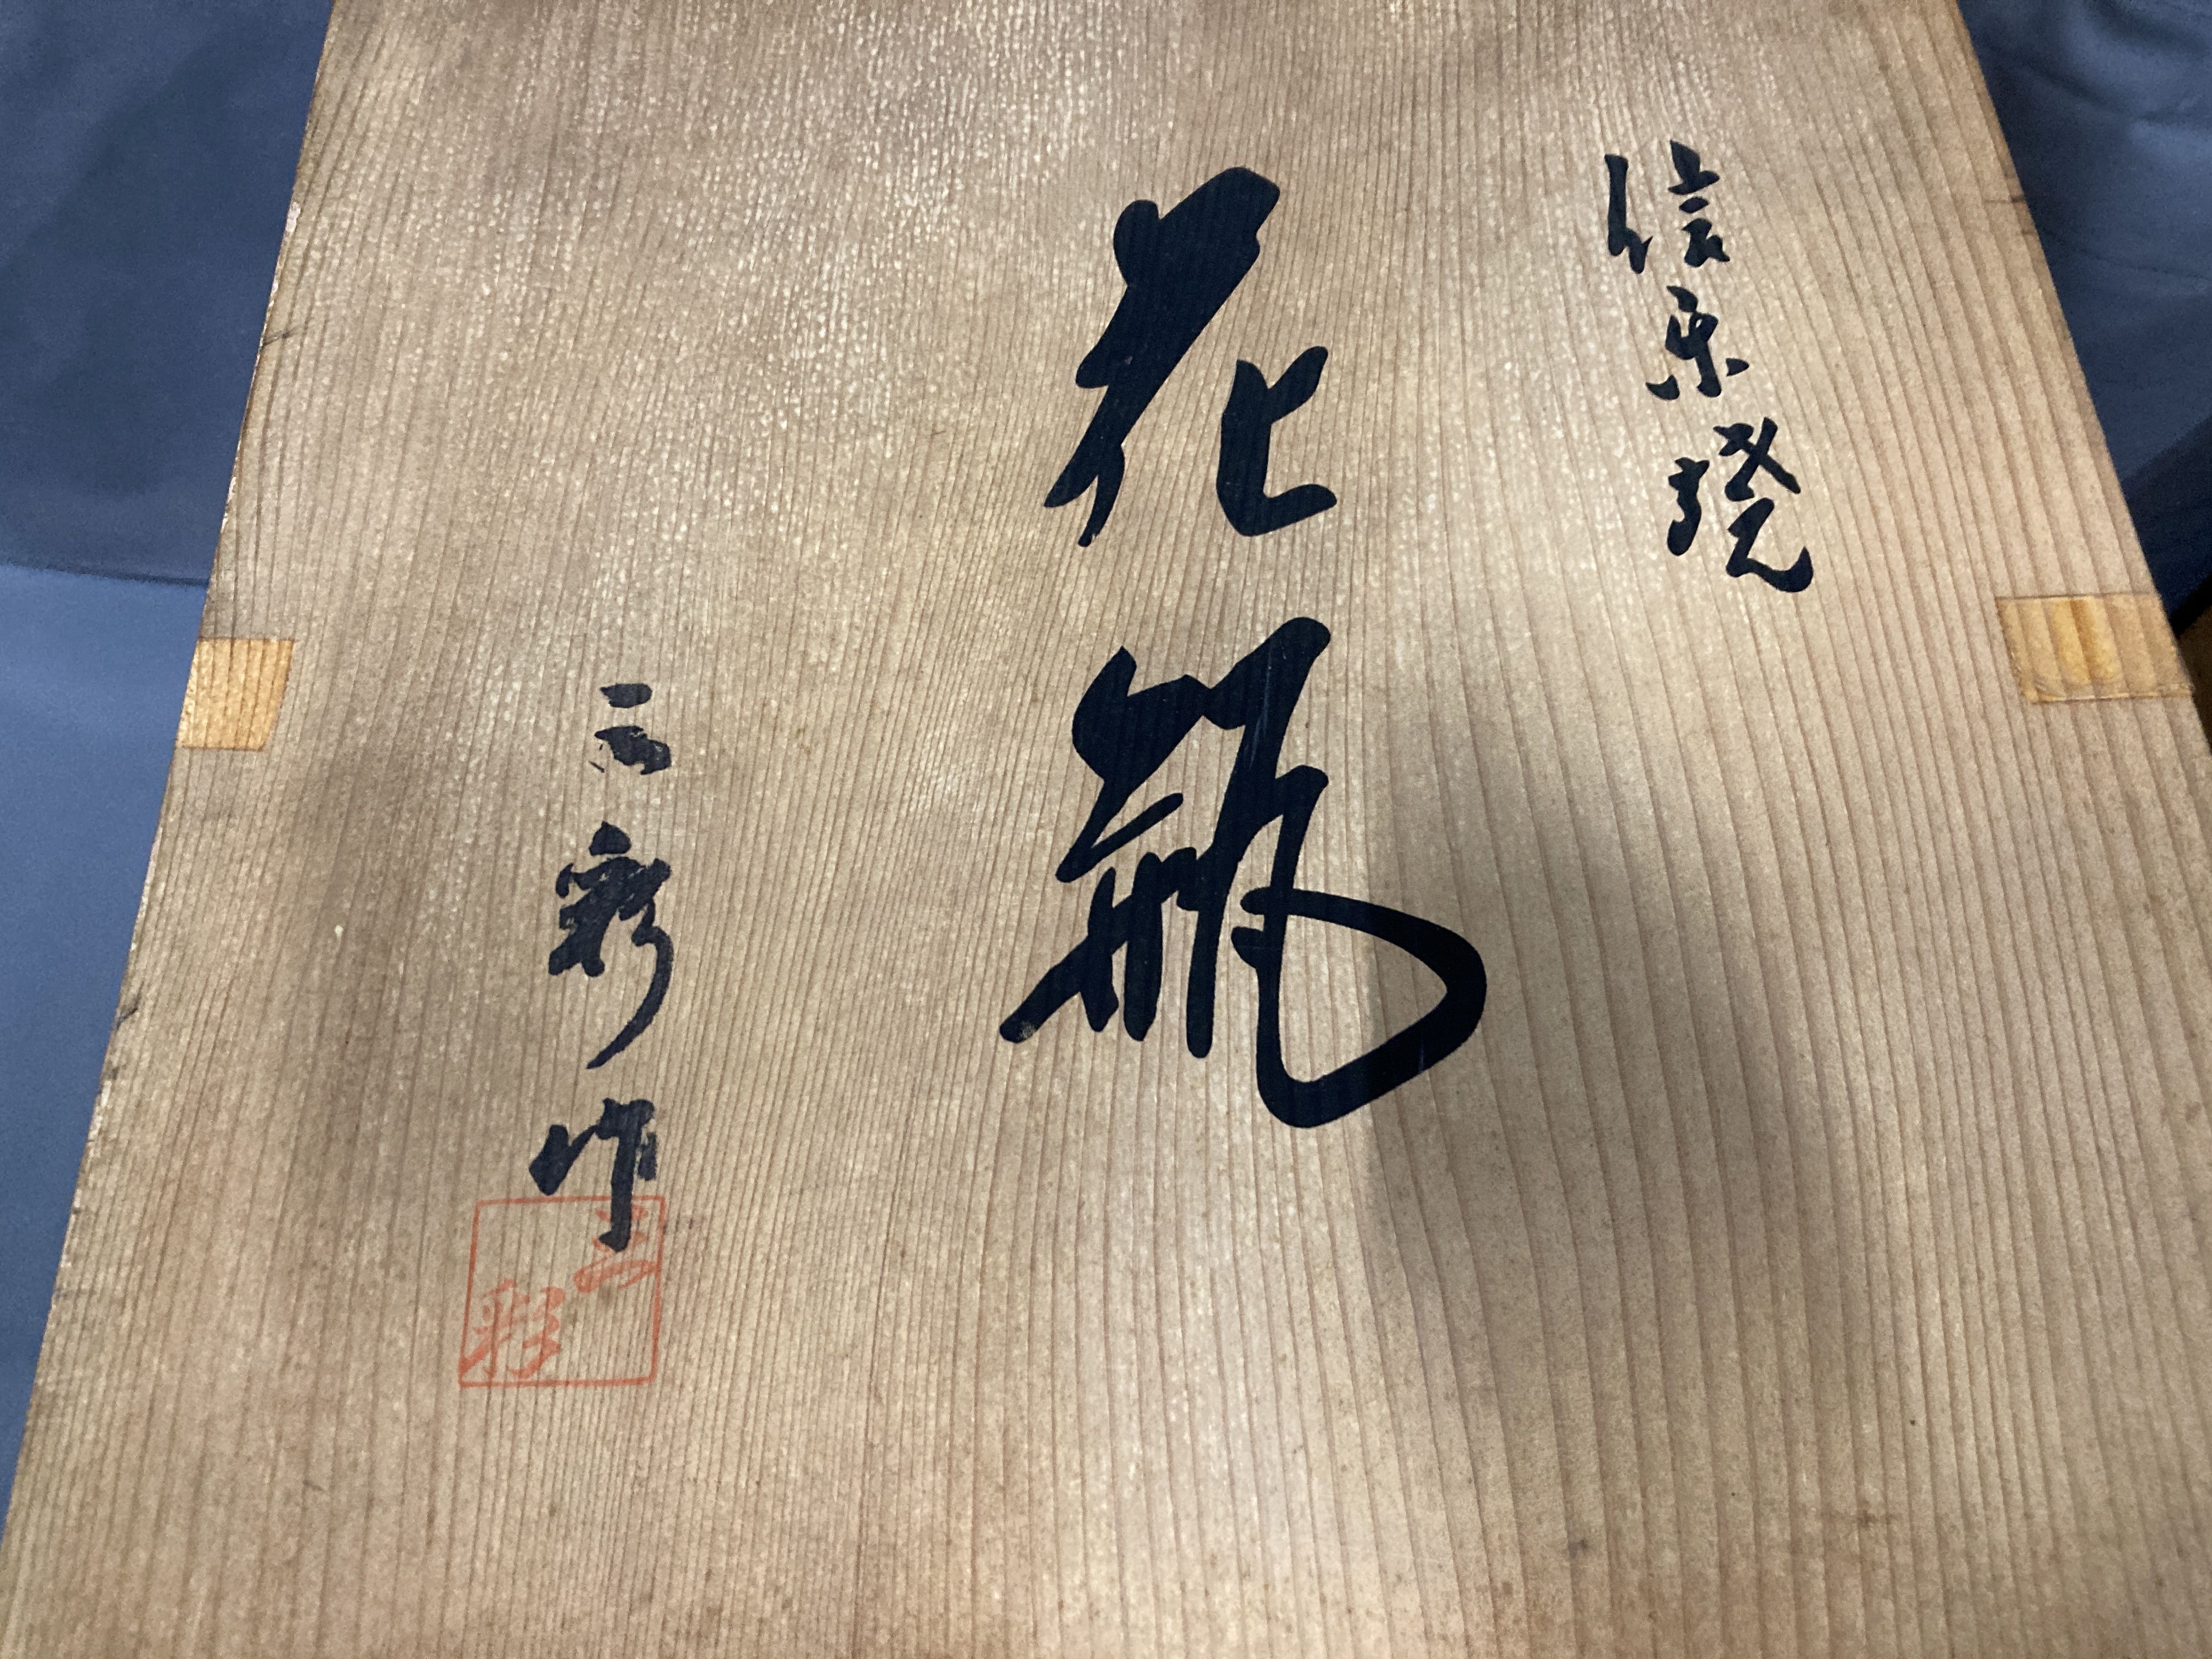 信楽焼
花瓶
三彩作
三彩